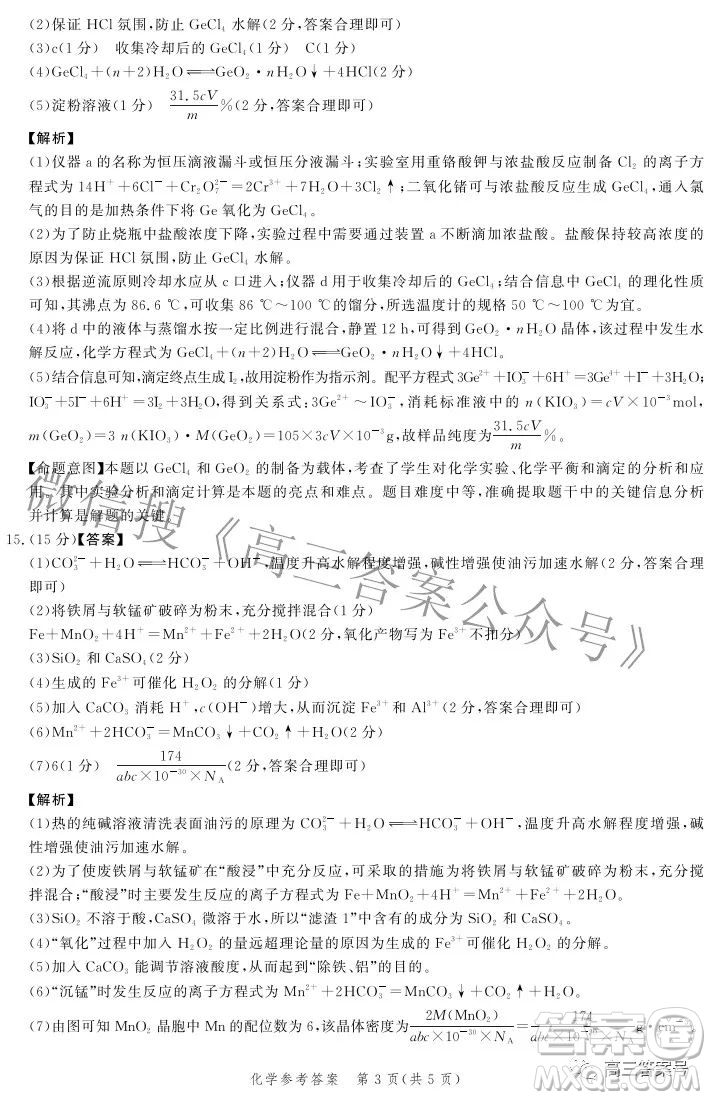 (2)保证 HCl 氛围,防止 GeCl₄ 水解(2 分,答案合理即可)
(3)c(1 分)　收集冷却后的 GeCl₄(1 分)　C(1 分)
(4)GeCl₄+(n+2)H₂O⇌GeO₂·nH₂O↓+4HCl(2 分)
(5)淀粉溶液(1 分)　31.5cV/m %(2 分,答案合理即可)
【解析】
(1)仪器 a 的名称为恒压滴液漏斗或恒压分液漏斗;实验室用重铬酸钾与浓盐酸反应制备 Cl₂ 的离子方
程式为 14H⁺+6Cl⁻+Cr₂O₇²⁻=2Cr³⁺+7H₂O+3Cl₂↑;二氧化锗可与浓盐酸反应生成 GeCl₄,通入氯
气的目的是加热条件下将 Ge 氧化为 GeCl₄。
(2)为了防止烧瓶中盐酸浓度下降,实验过程中需要通过装置 a 不断滴加浓盐酸。盐酸保持较高浓度的
原因为保证 HCl 氛围,防止 GeCl₄ 水解。
(3)根据逆流原则冷却水应从 c 口进入;仪器 d 用于收集冷却后的 GeCl₄;结合信息中 GeCl₄ 的理化性质
可知,其沸点为 86.6 ℃,可收集 86 ℃~100 ℃的馏分,所选温度计的规格 50 ℃~100 ℃为宜。
(4)将 d 中的液体与蒸馏水按一定比例进行混合,静置 12 h,可得到 GeO₂·nH₂O 晶体,该过程中发生水
解反应,化学方程式为 GeCl₄+(n+2)H₂O⇌GeO₂·nH₂O↓+4HCl。
(5)结合信息可知,滴定终点生成 I₂,故用淀粉作为指示剂。配平方程式 3Ge²⁺+IO₃⁻+6H⁺=3Ge⁴⁺+I⁻+3H₂O;
IO₃⁻+5I⁻+6H⁺=3I₂+3H₂O,得到关系式:3Ge²⁺~IO₃⁻,消耗标准液中的 n(KIO₃)=cV×10⁻³mol,
m(GeO₂)=3 n(KIO₃)·M(GeO₂)=105×3cV×10⁻³g,故样品纯度为 31.5cV/m %。
【命题意图】本题以 GeCl₄ 和 GeO₂ 的制备为载体,考查了学生对化学实验、化学平衡和滴定的分析和应
用。其中实验分析和滴定计算是本题的亮点和难点。题目难度中等,准确提取题干中的关键信息分析
并计算是解题的关键。
15.(15 分)【答案】
(1)CO₃²⁻+H₂O⇌HCO₃⁻+OH⁻,温度升高水解程度增强,碱性增强使油污加速水解(2 分,答案合理
即可)
(2)将铁屑与软锰矿破碎为粉末,充分搅拌混合(1 分)
Fe+MnO₂+4H⁺=Mn²⁺+Fe²⁺+2H₂O(2 分,氧化产物写为 Fe³⁺不扣分)
(3)SiO₂ 和 CaSO₄(2 分)
(4)生成的 Fe³⁺可催化 H₂O₂ 的分解(1 分)
(5)加入 CaCO₃ 消耗 H⁺,c(OH⁻)增大,从而沉淀 Fe³⁺和 Al³⁺(2 分,答案合理即可)
(6)Mn²⁺+2HCO₃⁻=MnCO₃↓+CO₂↑+H₂O(2 分)
(7)6(1 分)　174/(abc×10⁻³⁰×N_A)(2 分,答案合理即可)
【解析】
(1)热的纯碱溶液清洗表面油污的原理为 CO₃²⁻+H₂O⇌HCO₃⁻+OH⁻,温度升高水解程度增强,碱
性增强使油污加速水解。
(2)为了使废铁屑与软锰矿在“酸浸”中充分反应,可采取的措施为将铁屑与软锰矿破碎为粉末,充分搅
拌混合;“酸浸”时主要发生反应的离子方程式为 Fe+MnO₂+4H⁺=Mn²⁺+Fe²⁺+2H₂O。
(3)SiO₂ 不溶于酸,CaSO₄ 微溶于水,所以“滤渣 1”中含有的成分为 SiO₂ 和 CaSO₄。
(4)“氧化”过程中加入 H₂O₂ 的量远超理论量的原因为生成的 Fe³⁺可催化 H₂O₂ 的分解。
(5)加入 CaCO₃ 能调节溶液酸度,达到“除铁、铝”的目的。
(6)“沉锰”时发生反应的离子方程式为 Mn²⁺+2HCO₃⁻=MnCO₃↓+CO₂↑+H₂O。
(7)由图可知 MnO₂ 晶胞中 Mn 的配位数为 6,该晶体密度为 2M(MnO₂)/(abc×10⁻³⁰×N_A)=174/(abc×10⁻³⁰×N_A) g·cm⁻³
化学参考答案　第 3 页(共 5 页)
微信搜《高三答案公众号》
答案圈
高三答案号